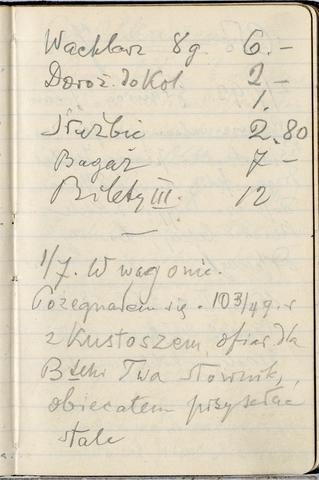 Wachlarz 8g. 6.–
Doroż. do Kol. 2–
1.
Służbie 2.80
Bagaż 7–
Bilety III. 12
—
1/7. W wagonie.
Pożegnałem się
z Kustoszem, ofiar. dla
Twa słownik,
obiecałem przysyłać
stale